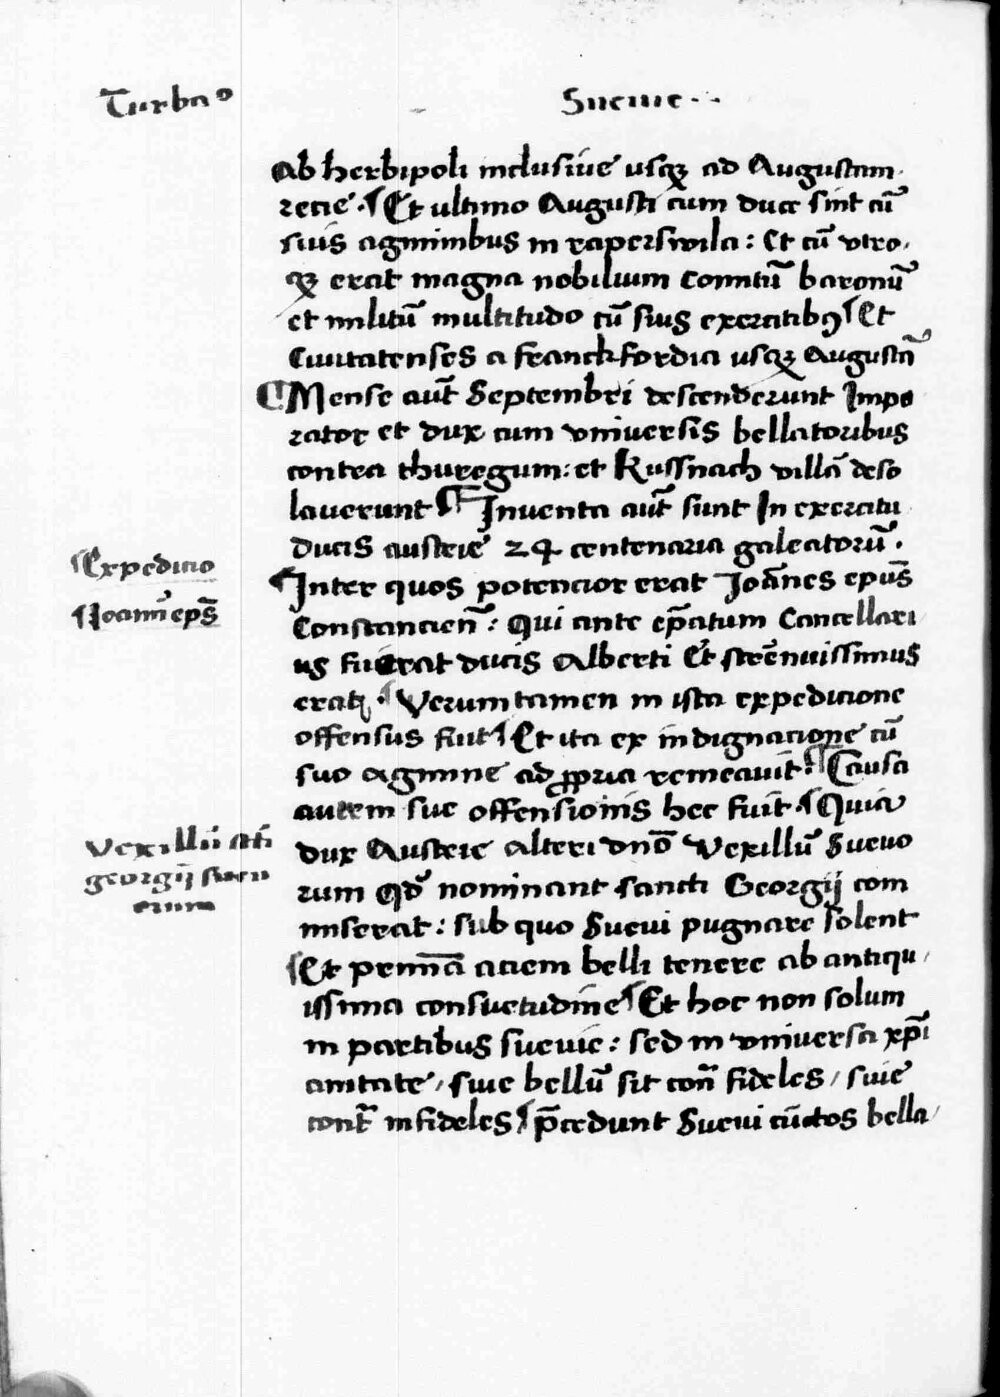 Turbaͦ
Sueuie
Ab herbipoli inclusiue usqꝫ ad Augustam
recie ¶ Et ultimo Augusti cum duce sint cū
suis agminibus in raperswila: Et cū utro
qꝫ erat magna nobilium Comitū baronū
et militū multitudo cū suis exercitibꝰ ¶ Et
Ciuitatenses a franckfordia usqꝫ Augustā
¶ Mense aūt Septembri descenderunt Impe
rator et dux cum vniuersis bellatoribus
contra thuregum: et Kussnach villā deso
lauerunt ¶ Inuenta aūt sunt In exercitu
ducis austrie 24 centenaria galeatorū.
¶ Inter quos potencior erat Joānes ep̄us
Constancien̄: Qui ante ep̄atum Cancellari
us fuerat ducis Alberti Et strēnuissimus
erat ¶ Verumtamen in ista expedicione
offensus fuit ¶ Et ita ex indignacione cū
suo agmine ad ꝓpria remeauit: ¶ Causa
autem sue offensionis hec fuit. ¶ Quia
dux Austrie alteri dn̄o Vexillū Sueuo
rum qd̄ nominant sancti Georgij com
miserat: sub quo Sueui pugnare solent
¶ Et primā aciem belli tenere ab antiqu
issima consuetudine ¶ Et hoc non solum
in partibus sueuie: sed in vniuersa xp̄i
anitate / siue bellū sit con̄ fideles / siue
cont̄ infideles ¶ p̄cedunt Sueui cūctos bella
¶ Expedicio
¶ Joannis ep̄s
Vexillū sc̄ti
georgij sueu
orum